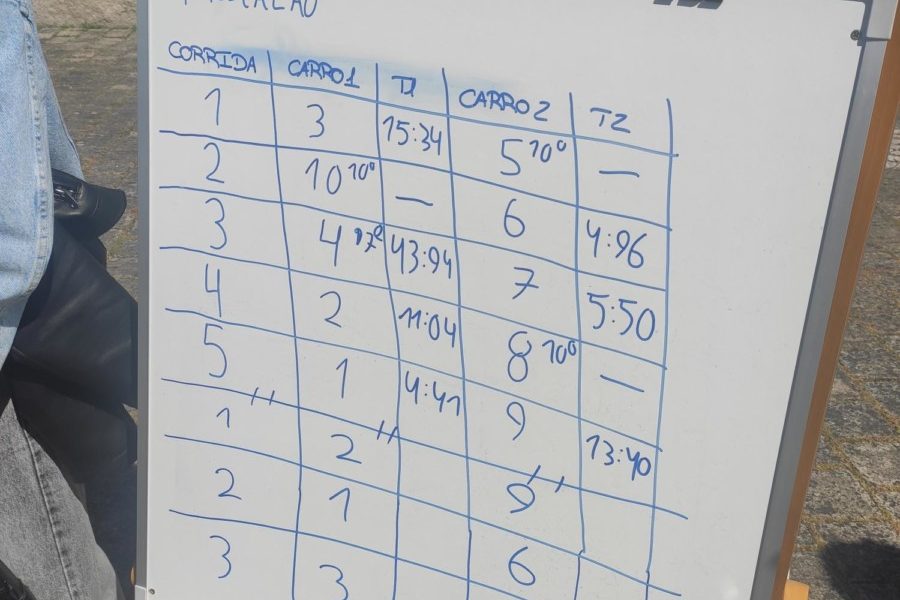 CORRIDA CARRO1 T1 CARRO2 T2
1 3 15:34 5 10º —
2 10 10º — 6 4:96
3 4 43:94 7 5:50
4 2 11:04 8 10º —
5 1 4:41 9 13:40
1 2 9
2 1 6
3 3